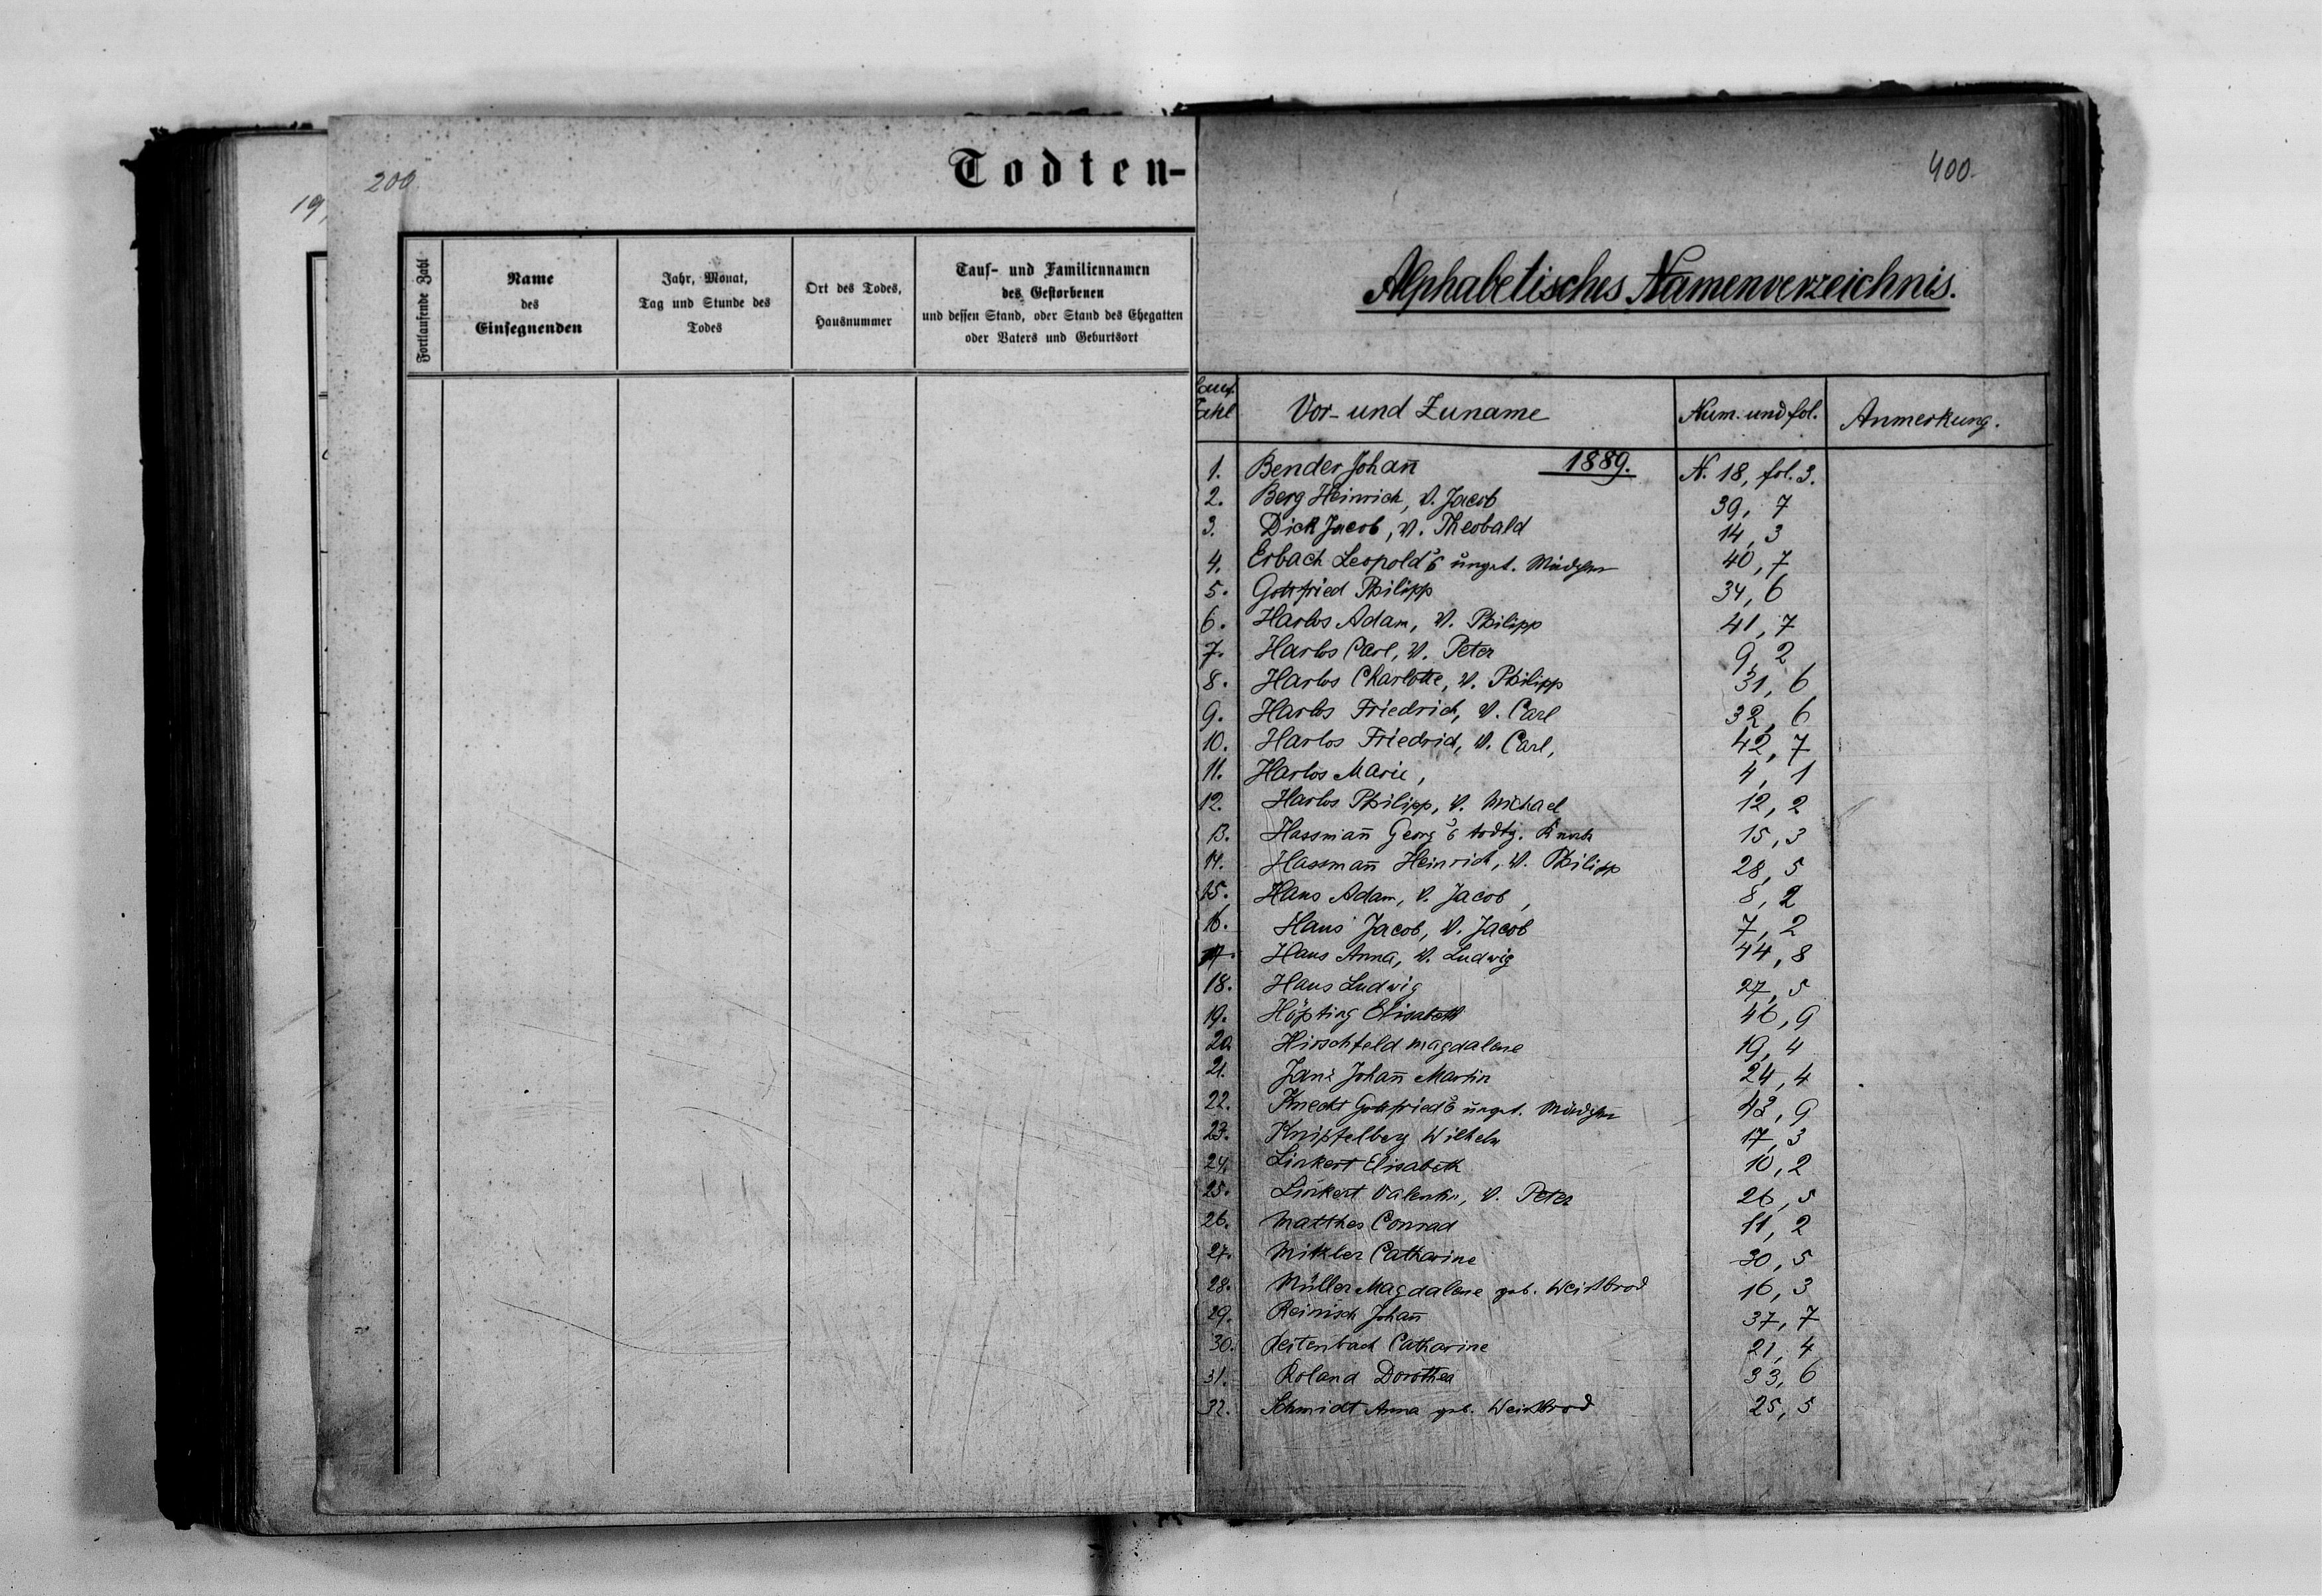 200
19
Todten-
Fortlaufende Zahl
Name
des
Einsegnenden
Jahr, Monat,
Tag und Stunde des
Todes
Ort des Todes,
Hausnummer
Tauf- und Familiennamen
des Gestorbenen
und dessen Stand, oder Stand des Ehegatten
oder Vaters und Geburtsort
400.
Alphabetisches Namenverzeichnis.
Lauf. Zahl Vor- und Zuname Num. und fol. Anmerkung.
1. Bender Johan̄ 1889. N. 18, fol. 3.
2. Berg Heinrich, V. Jacob 39, 7
3. Dick Jacob, V. Theobald 14, 3
4. Erbach Leopold's unget. Mädchen 40, 7
5. Gottfried Philipp 34, 6
6. Harlos Adam, V. Philipp 41, 7
7. Harlos Carl, V. Peter 9, 2
8. Harlos Charlotte, V. Philipp 31, 6
9. Harlos Friedrich, V. Carl 32, 6
10. Harlos Friedrich, V. Carl, 42, 7
11. Harlos Marie, 4, 1
12. Harlos Philipp, V. Michael 12, 2
13. Hassman̄ Georg's todtg. Knabe 15, 3
14. Hassman̄ Heinrich, V. Philipp 28, 5
15. Haus Adam, V. Jacob, 8, 2
16. Haus Jacob, V. Jacob 7, 2
17. Haus Anna, V. Ludwig 44, 8
18. Haus Ludwig 27, 5
19. Elisabeth 46, 9
20. Hirschfeld Magdalene 19, 4
21. Johan̄ Martin 24, 4
22. Knecht Gottfried's unget. Mädchen 9
23. Knipfelberg Wilhelm 17, 3
24. Linkert Elisabeth 10, 2
25. Linkert Valentin, V. Peter 26, 5
26. Matthes Conrad 11, 2
27. Catharine 30, 5
28. Müller Magdalene geb. Weissbrod 16, 3
29. Reinisch Johan̄ 37, 7
30. Reitenbach Catharine 21, 4
31. Roland Dorothea 33, 6
32. Schmidt Anna geb. Weissbrod 25, 5